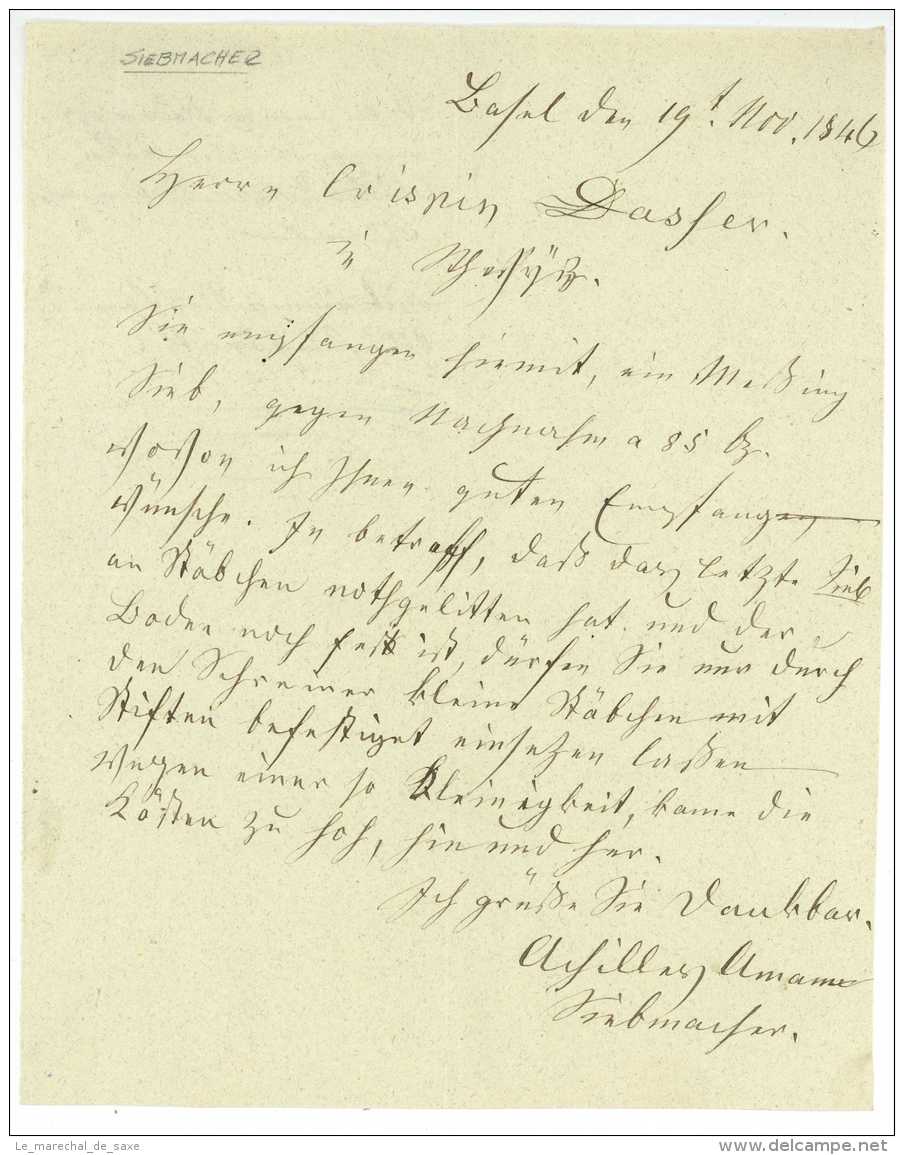 SIEBMACHER
Basel den 19t. Nov. 1846
Herrn Crispin Dasser.
in Schwÿz.
Sie empfangen hiermit, ein Meßing
Sieb, gegen Nachnahm a 85 bz.
wovon ich Ihnen guten Empfangen
wünsche. In betreff, daß das letzte Sieb
an Stäbchen nothgelitten hat. und der
Boden noch fest ist, dürfen Sie nur durch
den Schreiner kleine Stäbchen mit
Stiften befestiget einsetzen laßen
wegen einer so kleinigkeit, kame die
Kösten zu hoh, hin und her.
Ich grüße Sie Dankbar.
Achilles
Siebmacher.
Le_marechal_de_saxe
www.delcampe.net